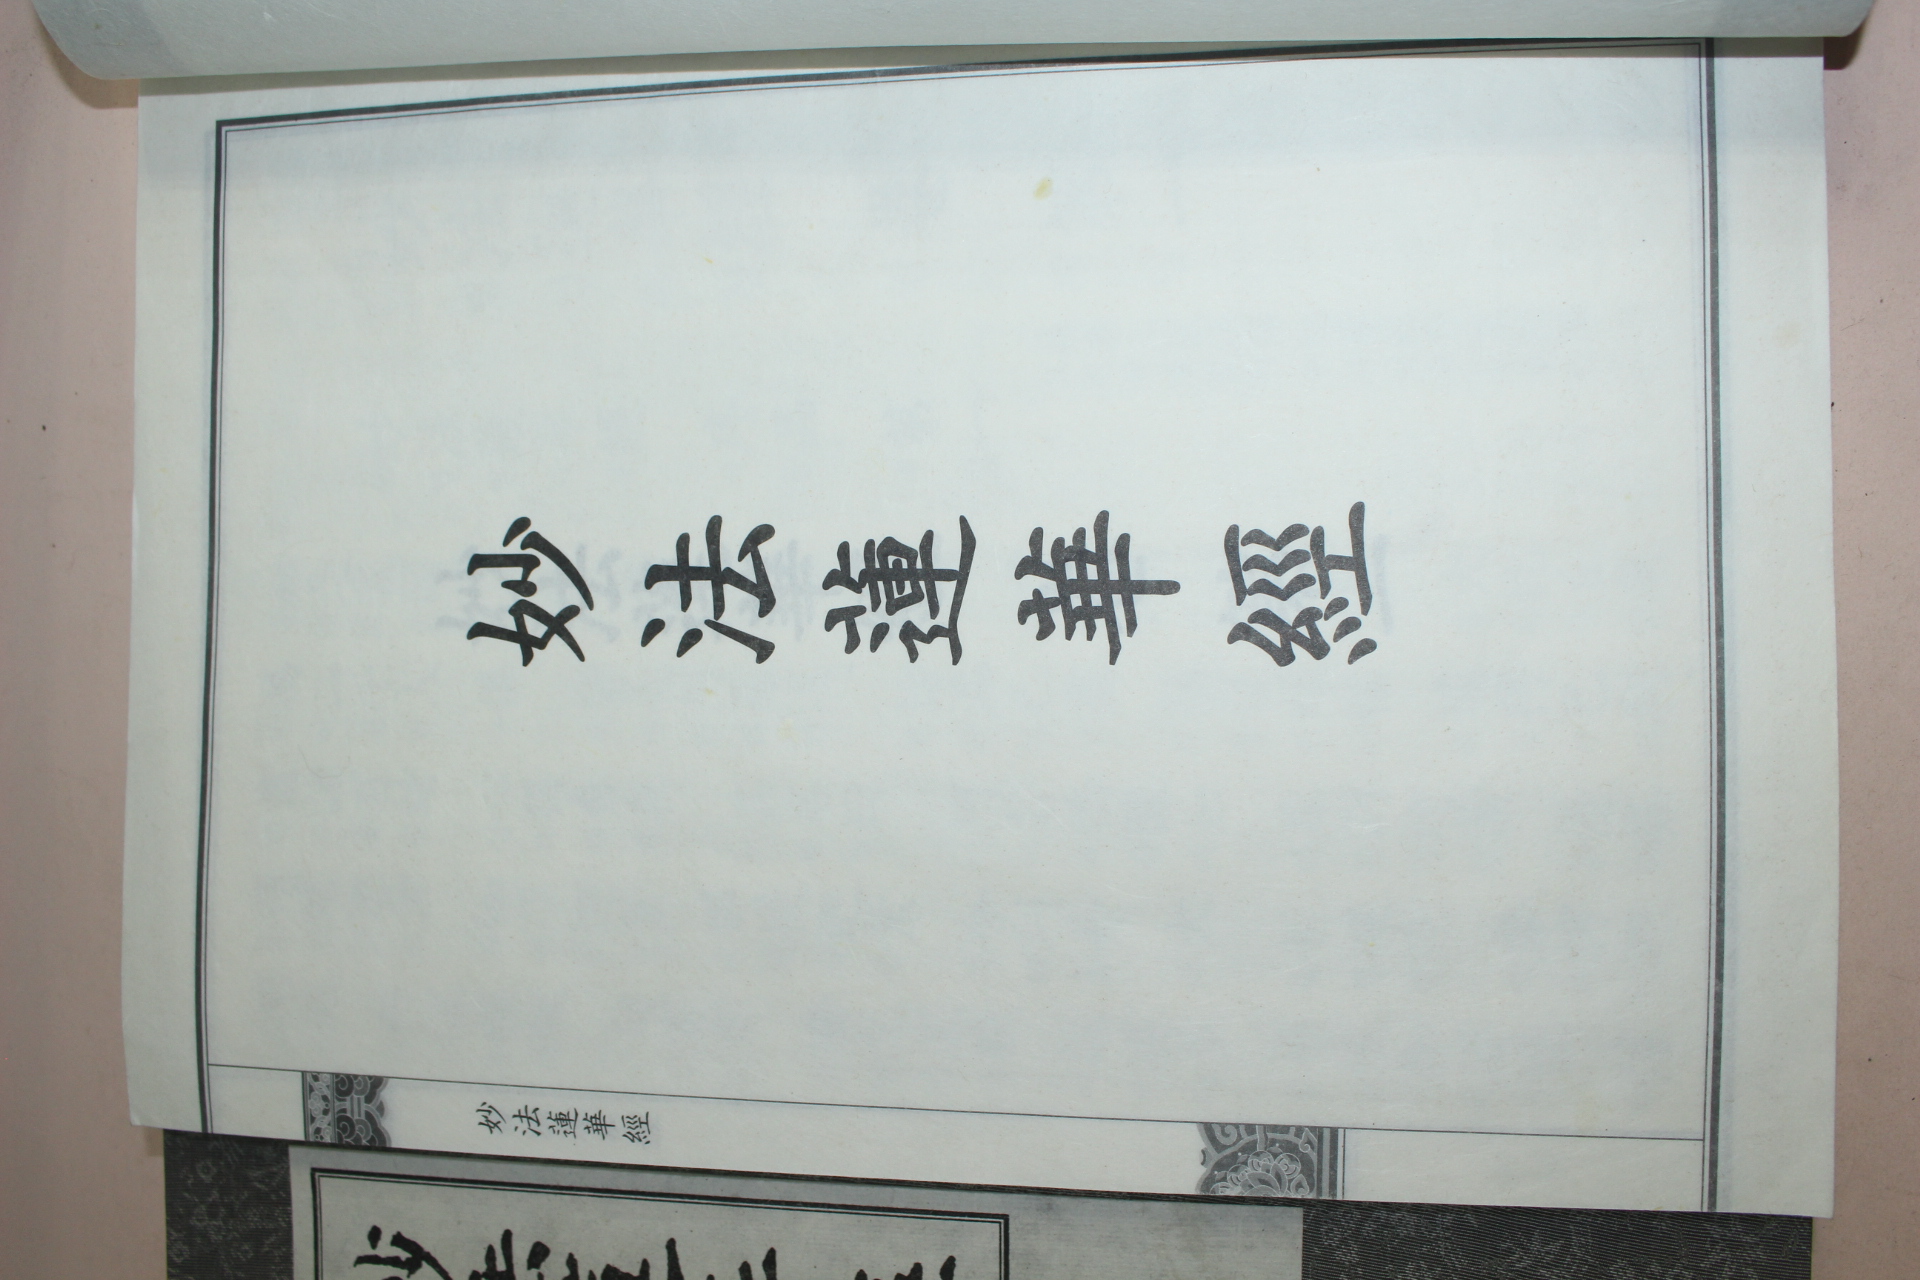 妙法蓮華經
妙法蓮華經